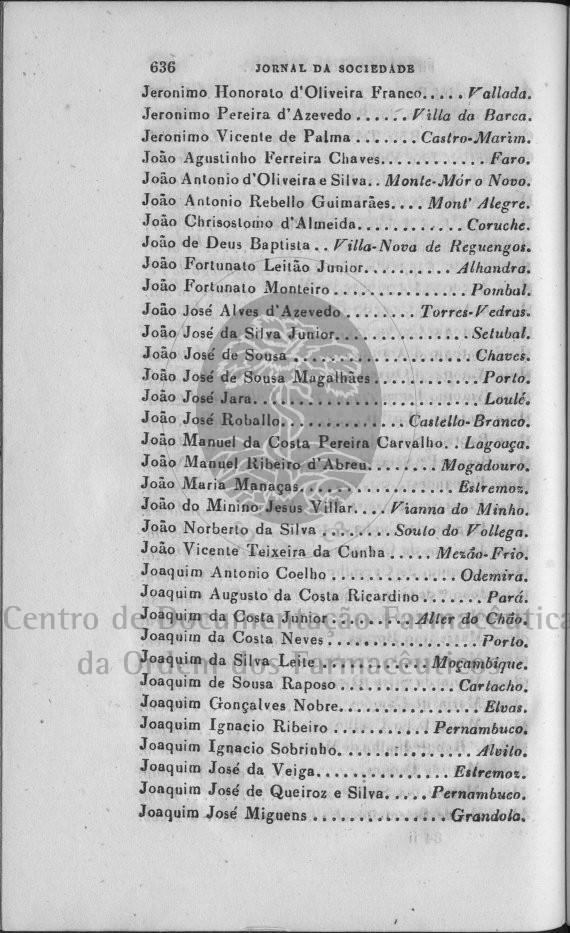 636 JORNAL DA SOCIEDADE
Jeronimo Honorato d'Oliveira Franco..... Vallada.
Jeronimo Pereira d'Azevedo ...... Villa da Barca.
Jeronimo Vicente de Palma ....... Castro-Marim.
João Agustinho Ferreira Chaves............ Faro.
João Antonio d'Oliveira e Silva.. Monte-Mór o Novo.
João Antonio Rebello Guimarães.... Mont' Alegre.
João Chrisostomo d'Almeida............ Coruche.
João de Deus Baptista .. Villa-Nova de Reguengos.
João Fortunato Leitão Junior.......... Alhandra.
João Fortunato Monteiro ............... Pombal.
João José Alves d'Azevedo ........ Torres-Vedras.
João José da Silva Junior............... Setubal.
João José de Sousa .................... Chaves.
João José de Sousa Magalhães ........... Porto.
João José Jara......................... Loulé.
João José Roballo.............. Castello-Branco.
João Manuel da Costa Pereira Carvalho.. Lagoaça.
João Manuel Ribeiro d'Abreu........ Mogadouro.
João Maria Manaças................. Estremoz.
João do Minino Jesus Villar.... Vianna do Minho.
João Norberto da Silva ........ Souto do Vollega.
João Vicente Teixeira da Cunha ..... Mezão-Frio.
Joaquim Antonio Coelho .............. Odemira.
Joaquim Augusto da Costa Ricardino ....... Pará.
Joaquim da Costa Junior ......... Alter do Chão.
Joaquim da Costa Neves ................ Porto.
Joaquim da Silva Leite ............ Moçambique.
Joaquim de Sousa Raposo ............. Cartacho.
Joaquim Gonçalves Nobre................ Elvas.
Joaquim Ignacio Ribeiro ........... Pernambuco.
Joaquim Ignacio Sobrinho............... Alvito.
Joaquim José da Veiga................ Estremoz.
Joaquim José de Queiroz e Silva..... Pernambuco.
Joaquim José Miguens ............... Grandola.
Centro de Documentação Farmacêutica
da Ordem dos Farmacêuticos